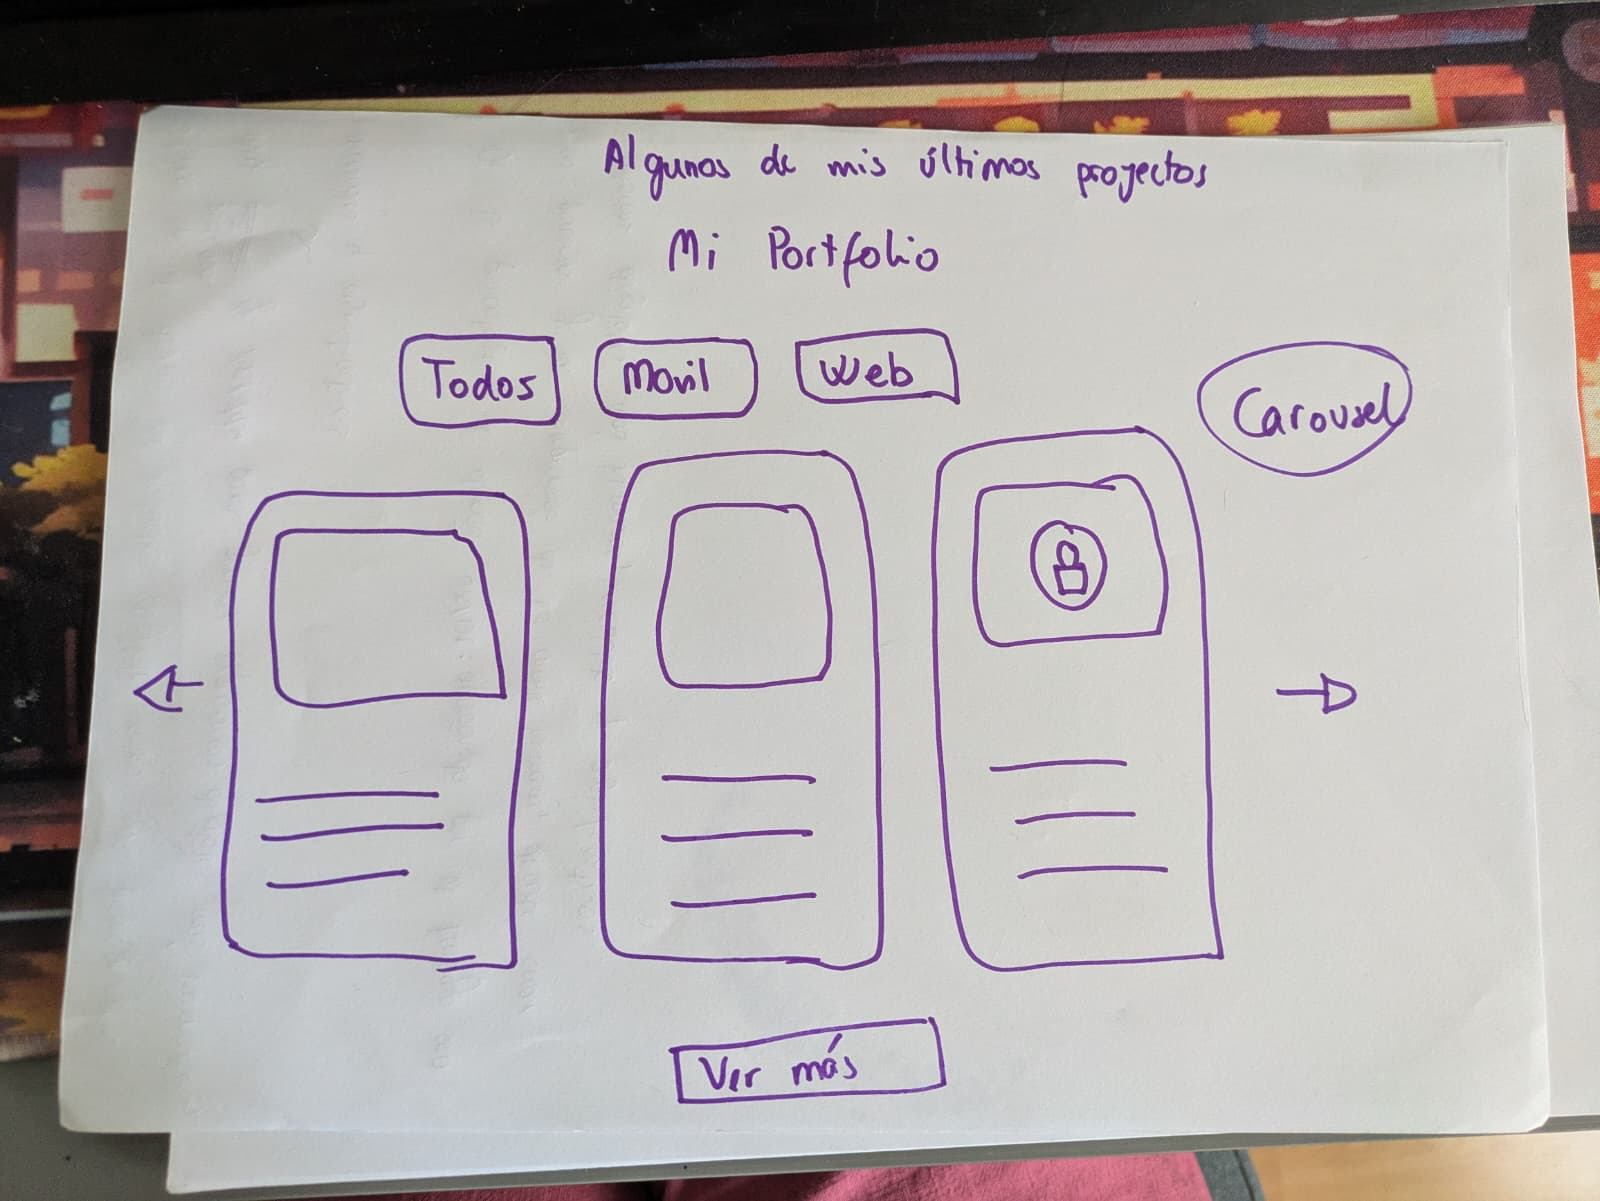 Algunos de mis últimos proyectos
Mi Portfolio
Todos Movil Web
Carousel
Ver más